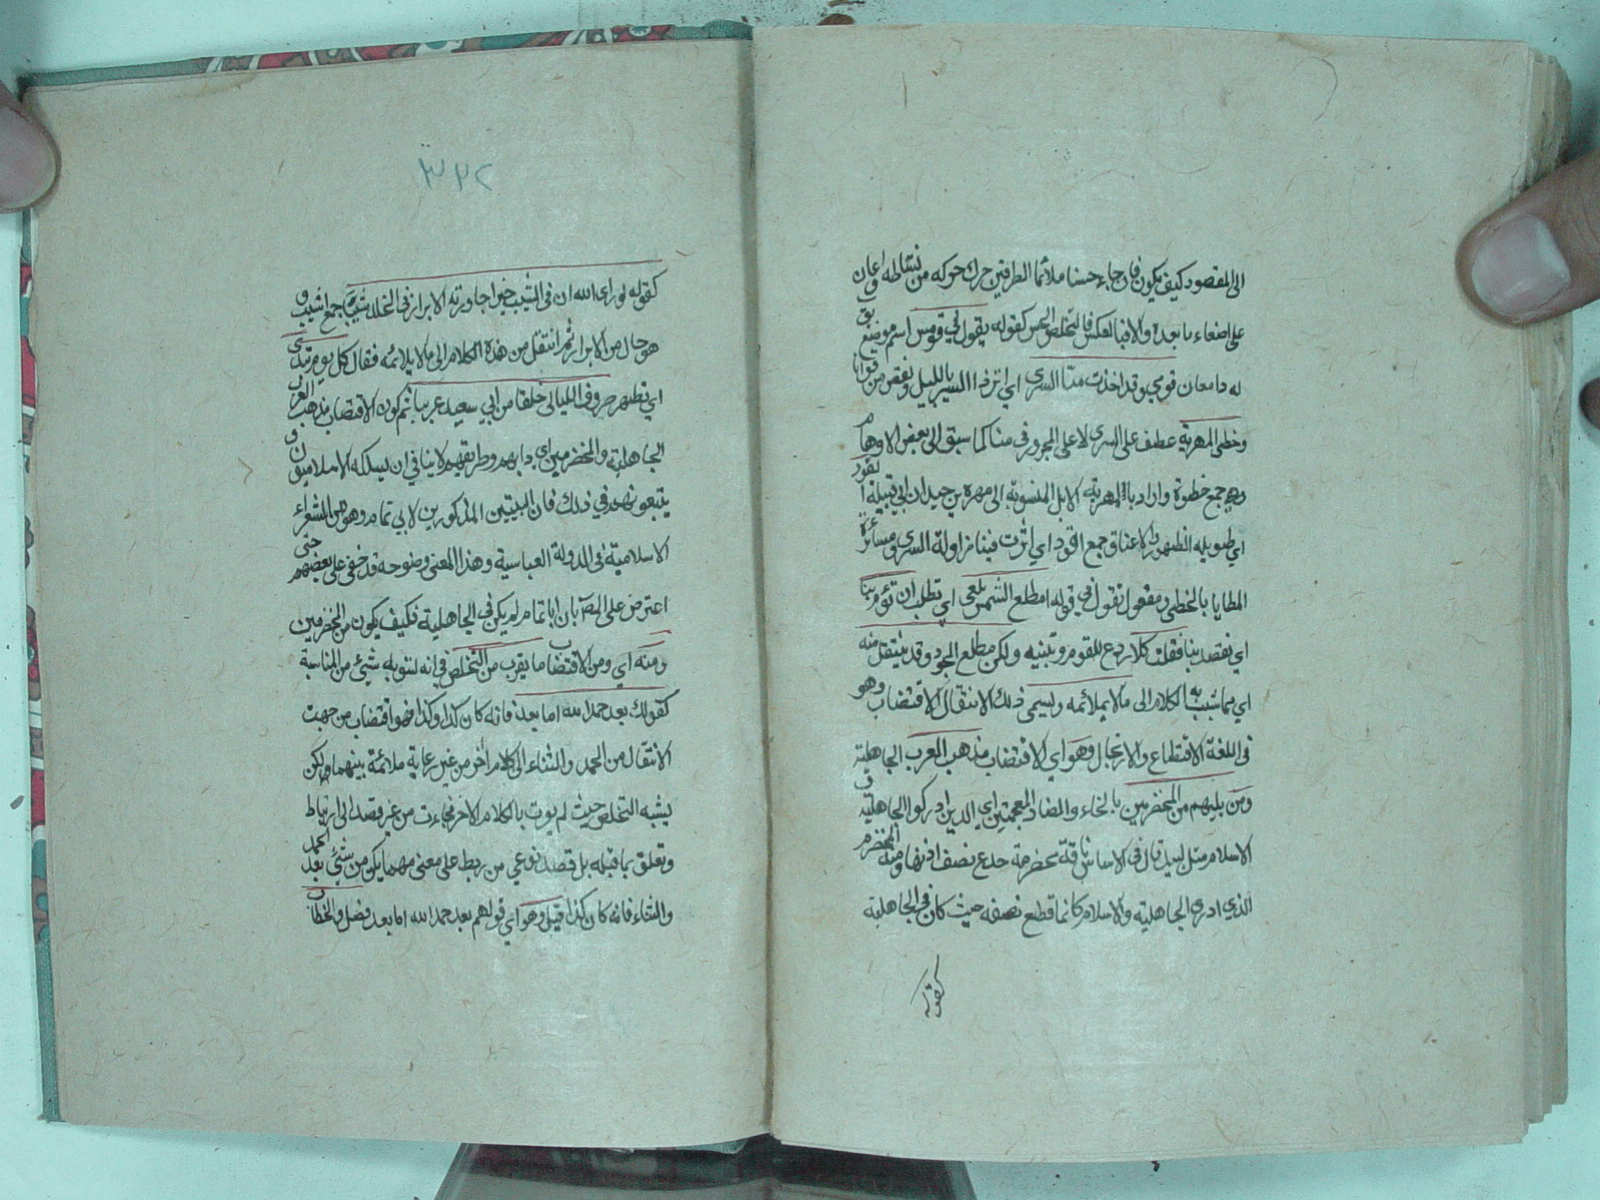 الى المقصود كيف يكون فان جاء حسنا ملائما الطرفين حرك حركه من نشاطه واعان
على اصغاء ما بعده والا فبالعكس فالتخلص الحسن كقوله يقول في قومس اسم موضع
له دامغان قومي وقد اخذت منا السرى اي اثر فينا السير بالليل ونقص من قوانا
وخطى المهرية عطف على السرى لا على المجرور في منا كما سبق الى بعض الاوهام
وهي جمع خطوة واراد بالمهرية الابل المنسوبة الى مهرة بن حيدان ابي قبيلة القود
اي طويلة الظهور والاعناق جمع اقود اي اثرت فينا مزاولة السرى ومسائرة
المطايا بالخطى ومفعول تقول في قوله امطلع الشمس تبغي اي تطلب ان تؤم بنا
اي تقصد بنا فقلت كلا ردع للقوم وتنبيه ولكن مطلع الجود وقد ينتقل منه
اي مما شبب به الكلام الى ما لا يملائمه ويسمى ذلك الانتقال الاقتضاب وهو
فى اللغة الاقتطاع والارتجال وهو اي الاقتضاب مذهب العرب الجاهلية
ومن يليهم من المخضرمين بالخاء والضاد المعجمتين اي الذين ادركوا الجاهلية و
الاسلام مثل لبيد قال في الاساس ناقة مخضرمة جدع نصف اذنها ومنه المخضرم
الذي ادرك الجاهلية والاسلام كانما قطع نصفه حيث كان في الجاهلية
كقوله
٣٢٢
كقوله لو راى الله ان في الشيب خيرا جاورته الابرار في الخلد شيبا جمع اشيب و
هو حال من الابرار ثم انتقل من هذه الكلام الى ما لا يلائمه فقال كل يوم تبدي
اي تظهر صروف الليالى خلقا من ابي سعيد غريبا ثم كون الاقتضاب مذهب العرب
الجاهلية والمخضرمين اي دابهم وطريقهم لا ينافي ان يسلكه الاسلاميون و
يتبعونهم في ذلك فان البيتين المذكورين لابي تمام وهو من الشعراء
الاسلامية فى الدولة العباسية وهذا المعنى وضوحه قد خفى على بعضهم حتى
اعترض على المص بان ابا تمام لم يكن في الجاهلية فكيف يكون من المخضرمين
ومنه اي ومن الاقتضاب ما يقرب من التخلص في انه يشوبه شيئ من المناسبة
كقولك بعد حمد الله اما بعد فانه كان كذا وكذا فهو اقتضاب من جهت
الانتقال من الحمد والثناء الى كلام اخر من غير رعاية ملائمة بينهما لكن
يشبه التخلص حيث لم يوت بالكلام الاخر فجاءت من غير قصد الى ارتباط
وتعلق بما قبله بل قصد نوعي من ربط على معنى مهما يكن من شيئ بعد الحمد
والثناء فانه كان كذا قيل وهو اي قولهم بعد حمد الله اما بعد فصل الخطاب